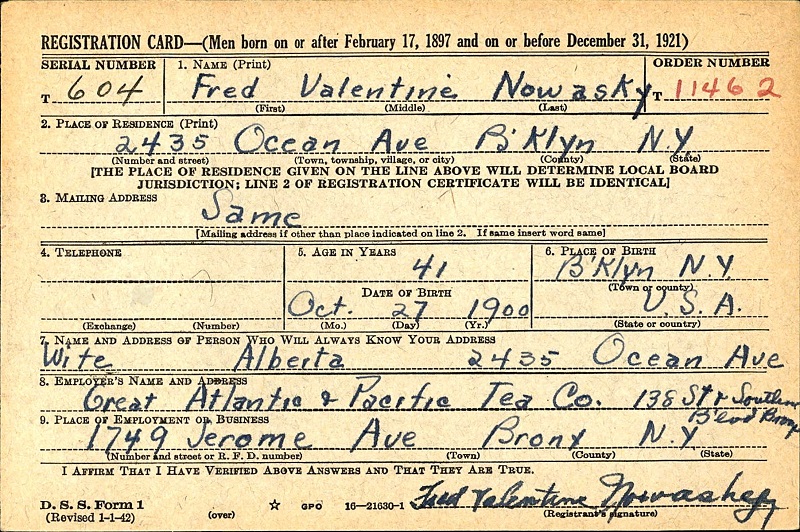 REGISTRATION CARD—(Men born on or after February 17, 1897 and on or before December 31, 1921)
SERIAL NUMBER
T 604
1. NAME (Print)
Fred Valentine Nowasky
(First) (Middle) (Last)
ORDER NUMBER
T 11462
2. PLACE OF RESIDENCE (Print)
2435 Ocean Ave B'Klyn N.Y
(Number and street) (Town, township, village, or city) (County) (State)
[THE PLACE OF RESIDENCE GIVEN ON THE LINE ABOVE WILL DETERMINE LOCAL BOARD
JURISDICTION; LINE 2 OF REGISTRATION CERTIFICATE WILL BE IDENTICAL]
3. MAILING ADDRESS
Same
[Mailing address if other than place indicated on line 2. If same insert word same]
4. TELEPHONE
(Exchange) (Number)
5. AGE IN YEARS
41
DATE OF BIRTH
Oct. 27 1900
(Mo.) (Day) (Yr.)
6. PLACE OF BIRTH
B'Klyn N.Y
(Town or county)
U.S.A.
(State or country)
7. NAME AND ADDRESS OF PERSON WHO WILL ALWAYS KNOW YOUR ADDRESS
Wife Alberta 2435 Ocean Ave
8. EMPLOYER'S NAME AND ADDRESS
Great Atlantic & Pacific Tea Co. 138 St & Southern
B'lvd Bronx
9. PLACE OF EMPLOYMENT OR BUSINESS
1749 Jerome Ave Bronx N.Y
(Number and street or R. F. D. number) (Town) (County) (State)
I AFFIRM THAT I HAVE VERIFIED ABOVE ANSWERS AND THAT THEY ARE TRUE.
D. S. S. Form 1
(Revised 1-1-42) (over) ☆ GPO 16—21630-1
Fred Valentine Nowasky
(Registrant's signature)